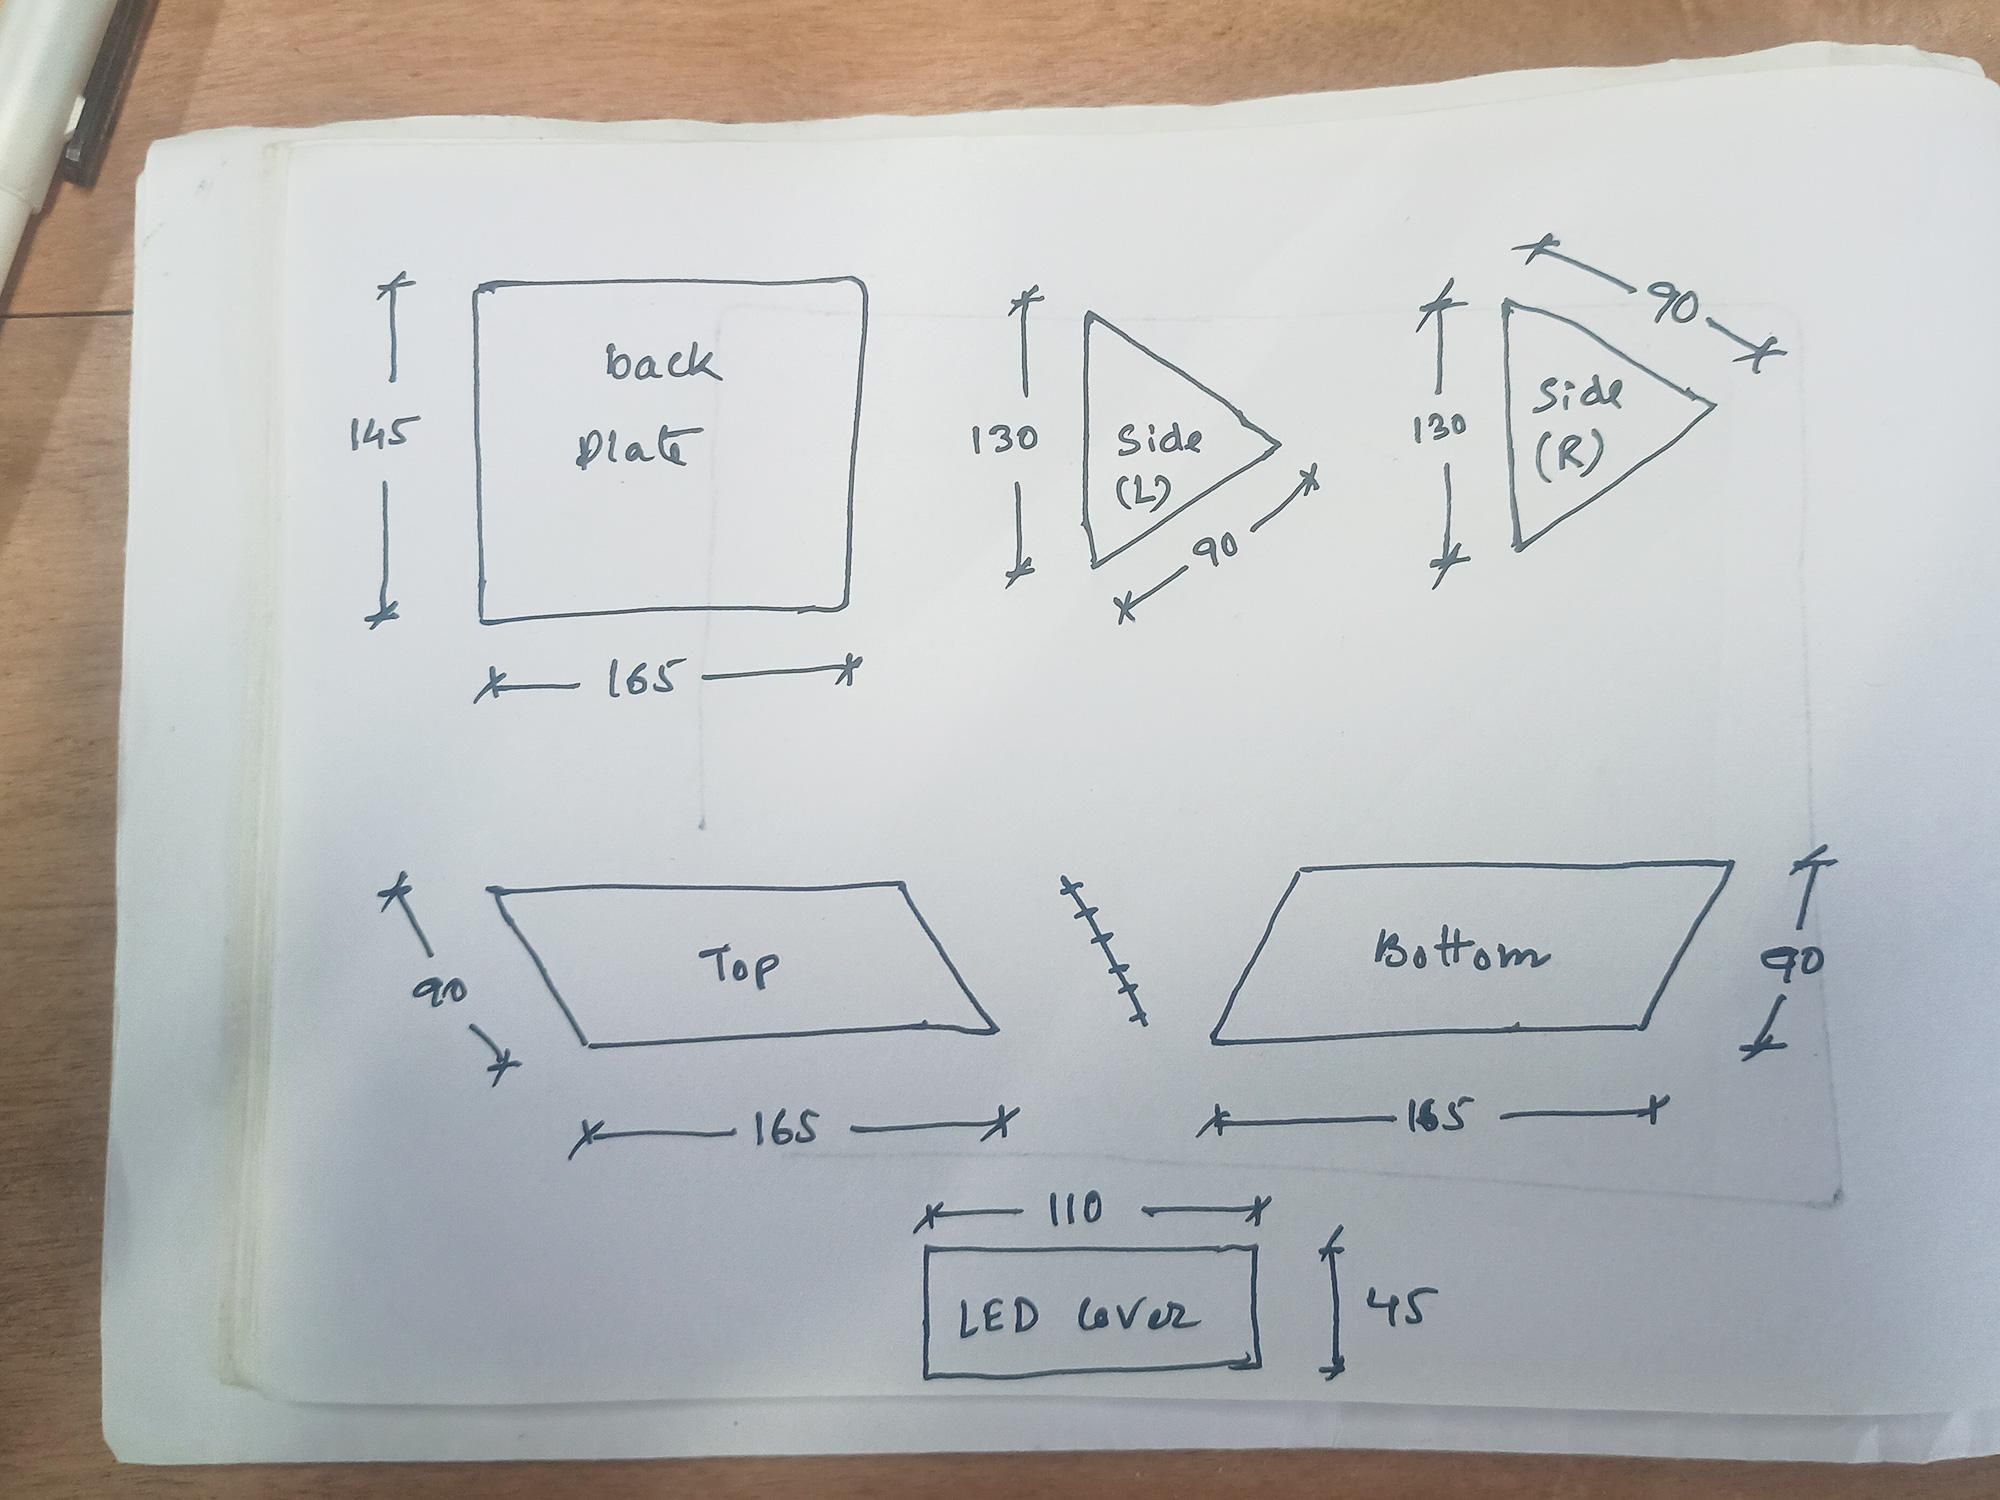 back
plate
145
165
Side
(L)
130
90
Side
(R)
130
90
Top
90
165
Bottom
90
165
110
LED Cover
45